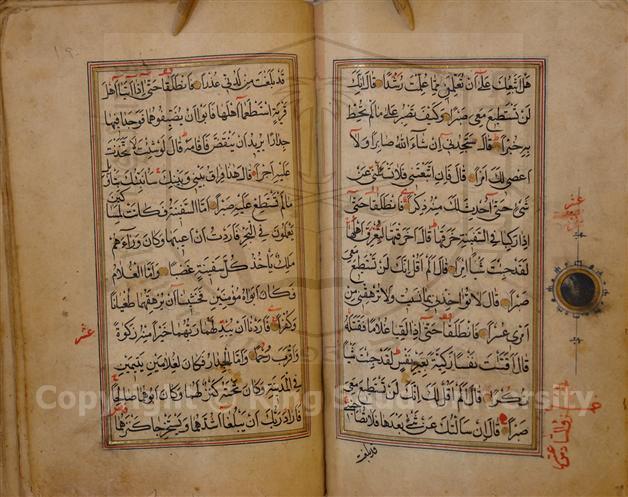 هل اتبعك على ان تعلمن مما علمت رشدا قال انك
لن تستطيع معي صبرا وكيف تصبر على ما لم تحط
به خبرا قال ستجدني ان شاء الله صابرا ولا
اعصي لك امرا قال فان اتبعتني فلا تسئلني عن
شئ حتى احدث لك منه ذكرا فانطلقا حتى
اذا ركبا في السفينة خرقها قال اخرقتها لتغرق اهلها
لقد جئت شئا امرا قال الم اقل انك لن تستطيع معي
صبرا قال لا تؤاخذني بما نسيت ولا ترهقني من
امري عسرا فانطلقا حتى اذا لقيا غلاما فقتله
قال اقتلت نفسا زكية بغير نفس لقد جئت شئا
نكرا قال الم اقل لك انك لن تستطيع معي
صبرا قال ان سالتك عن شئ بعدها فلا تصاحبني
قد بلغت
قد بلغت من لدني عذرا فانطلقا حتى اذا اتيا اهل
قرية استطعما اهلها فابوا ان يضيفوهما فوجدا فيها
جدارا يريد ان ينقض فاقامه قال لو شئت لاتخذت
عليه اجرا قال هذا فراق بيني وبينك سانبئك بتاويل
ما لم تستطع عليه صبرا اما السفينة فكانت لمساكين
يعملون في البحر فاردت ان اعيبها وكان وراءهم
ملك ياخذ كل سفينة غصبا واما الغلام
فكان ابواه مؤمنين فخشينا ان يرهقهما طغيانا
وكفرا فاردنا ان يبدلهما ربهما خيرا منه زكوة
واقرب رحما واما الجدار فكان لغلامين يتيمين
في المدينة وكان تحته كنز لهما وكان ابوهما صالحا
فاراد ربك ان يبلغا اشدهما ويستخرجا كنزهما
عشر
عشر
Copyright © King Saud University